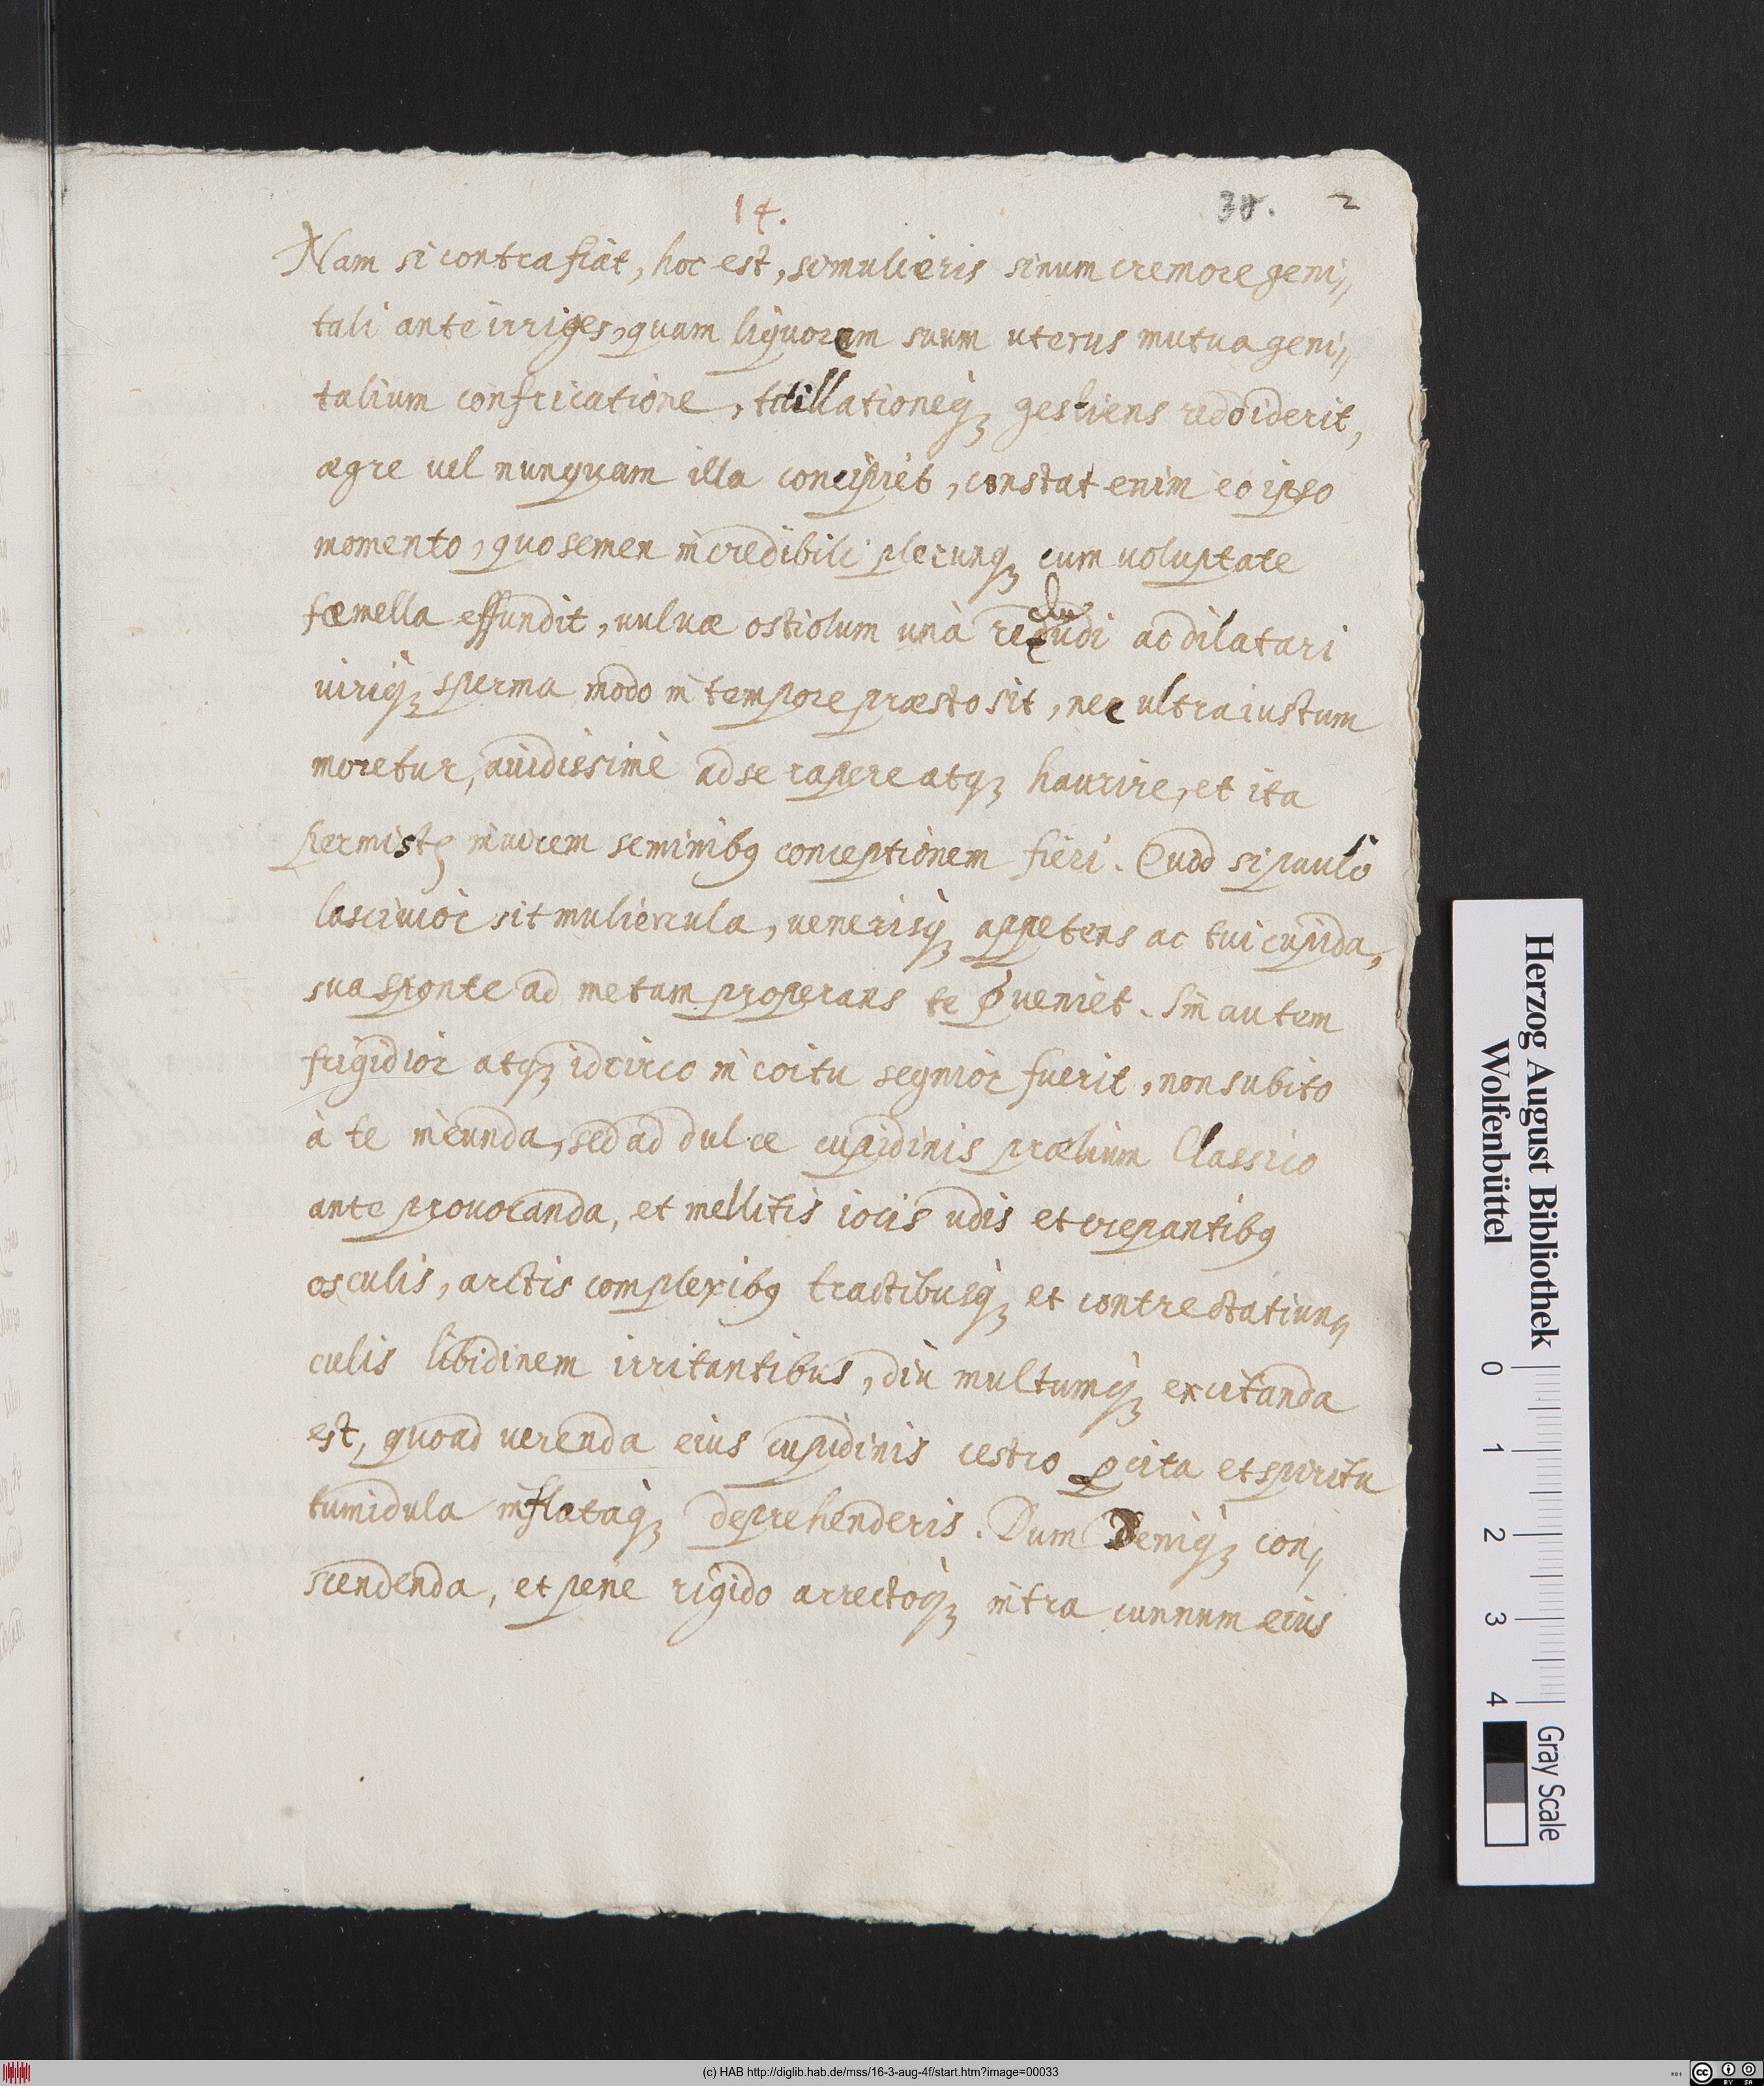 14.
38. 2
Nam si contra fiat, hoc est, si mulieris sinum cremore geni//
tali ante irriges, quam liquorem suum uterus mutua geni//
talium confricatione, titillationeq3 gestiens reddiderit,
ægre vel nunquam illa concipiet, constat enim eo ipso
momento, quo semen incredibili plerunq3 cum voluptate
fœmella effundit, vulvæ ostiolum unà recludi ac dilatari
viriq3 sperma modo in tempore præsto sit, nec ultra iustum
moretur, avidissimè ad se rapere atq3 haurire, et ita
permistis invicem seminib9 conceptionem fieri. Quod si paulò
lascivior sit muliercula, venerisq3 appetens ac tui cupida,
sua sponte ad metam properans te præveniet. Sin autem
frigidior atq3 idcirco in coitu segnior fuerit, non subito
à te ineunda, sed ad dulce cupidinis prælium Classico
ante provocanda, et mellitis iocis udis et crepantib9
osculis, arctis complexib9 tractibusq3 et contrectatiun//
culis libidinem irritantibus, diu multumq3 excitanda
est, quoad verenda eius cupidinis œstro ꝑcita et spiritu
tumidula inflataq3 deprehenderis. Dum Deniq3 con//
scendenda, et pene rigido arrectoq3 intra cunnum eius
Herzog August Bibliothek
Wolfenbüttel
0 1 2 3 4
Gray Scale
(c) HAB http://diglib.hab.de/mss/16-3-aug-4f/start.htm?image=00033